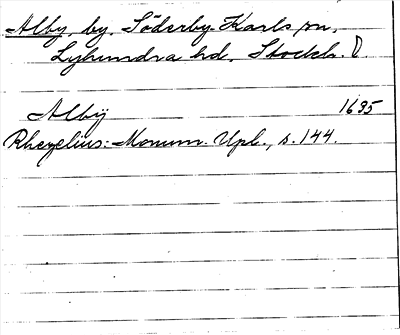 Alby, by, Söderby-Karls sn,
Lyhundra hd, Stockh. l.
Albÿ 1635
Rhezelius: Monum. Upl., s. 144.